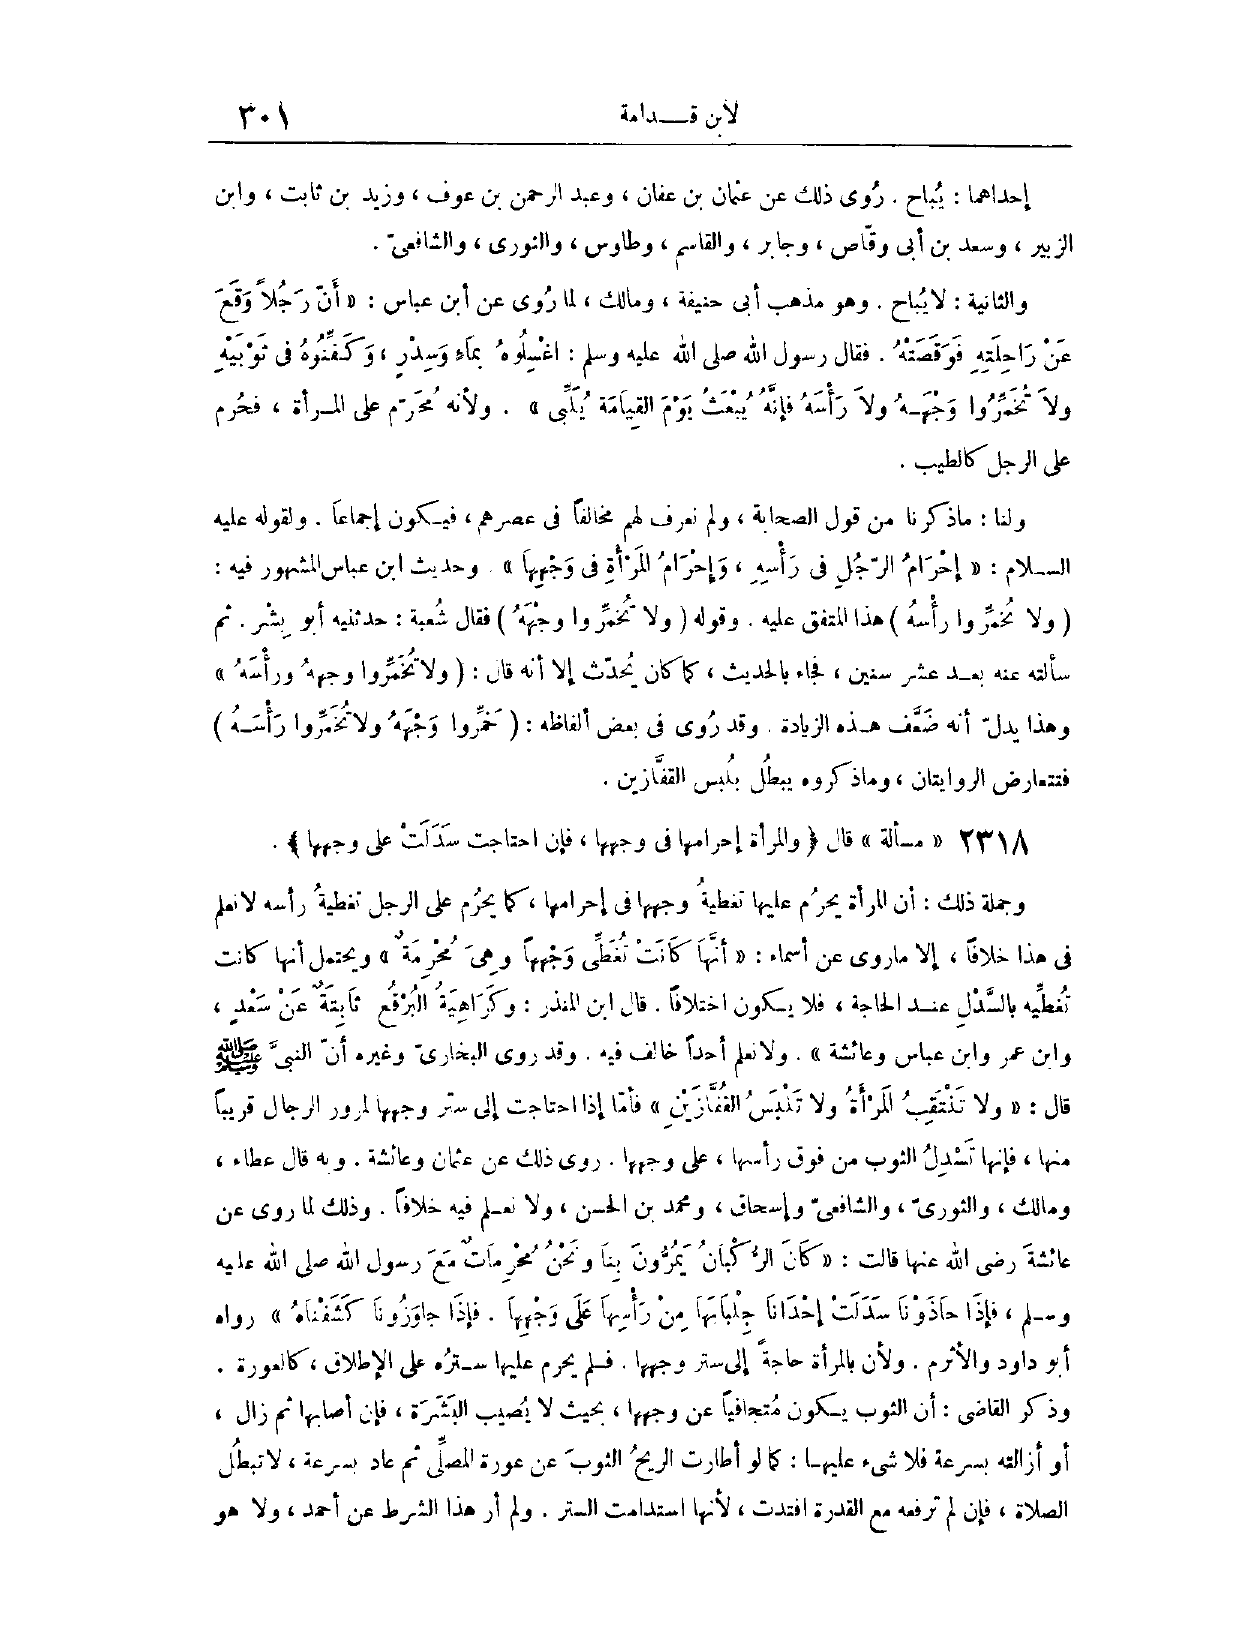 لابن قـــدامة ٣٠١
إحداهما : يُباح . رُوى ذلك عن عثمان بن عفان ، وعبد الرحمن بن عوف ، وزيد بن ثابت ، وابن
الزبير ، وسعد بن أبى وقّاص ، وجابر ، والقاسم ، وطاوس ، والثورى ، والشافعىّ .
والثانية : لا يُباح . وهو مذهب أبى حنيفة ، ومالك ، لما رُوى عن ابن عباس : « أَنّ رَجُلاً وَقَعَ
عَنْ رَاحِلَتِهِ فَوَقَصَتْهُ . فقال رسول الله صلى الله عليه وسلم : اغْسِلُوهُ بِمَاءٍ وَسِدْرٍ ، وَكَفِّنُوهُ فى ثَوْبَيْهِ
ولاَ تُخَمِّرُوا وَجْهَـهُ ولاَ رَأْسَهُ فإنَّهُ يُبْعَثُ يَوْمَ القِيَامَة يُلَبِّى » . ولأنه مُحَرّم على المـرأة ، فحُرم
على الرجل كالطيب .
ولنا : ماذكرنا من قول الصحابة ، ولم نعرف لهم مخالفاً فى عصرهم ، فيـكون إجماعاً . ولقوله عليه
السـلام : « إحْرَامُ الرّجُلِ فى رَأْسِهِ ، وَإحْرَامُ المَرْأَةِ فى وَجْهِهَا » . وحديث ابن عباس المشهور فيه :
( ولا تُخَمِّروا رأْسَهُ ) هذا المتفق عليه . وقوله ( ولا تُخمِّروا وجْهَهُ ) فقال شُعبة : حدثنيه أبو بِشْر . ثم
سألته عنه بعـد عشر سنين ، فجاء بالحديث ، كما كان يُحدّث إلا أنه قال : ( ولا تُخَمِّروا وجههُ ورأْسَهُ »
وهذا يدلّ أنه ضَعَّف هـذه الزيادة . وقد رُوى فى بعض ألفاظه : ( خَمِّروا وَجْهَهُ ولا تُخَمِّروا رَأْسَـهُ )
فتتعارض الروايتان ، وماذكروه يبطُل بلُبس القفَّازين .
٢٣١٨ « مسألة » قال ﴿ والمرأة إحرامها فى وجهها ، فإن احتاجت سَدَلَتْ على وجهها ﴾ .
وجملة ذلك : أن المرأة يحرُم عليها تغطيةُ وجهها فى إحرامها ، كما يحرُم على الرجل تغطيةُ رأسه لا نعلم
فى هذا خلافاً ، إلا ماروى عن أسماء : « أنَّهَا كَانَتْ تُغَطِّى وَجْهَهاً وهِىَ مُحْرِمَةٌ » ويحتمل أنها كانت
تُغطِّيه بالسَّدْلِ عنـد الحاجة ، فلا يـكون اختلافاً . قال ابن المنذر : وكَرَاهِيَةُ البُرْقُعِ ثابِتَةٌ عَنْ سَعْدٍ ،
وابن عمر وابن عباس وعائشة » . ولا نعلم أحداً خالف فيه . وقد روى البخارىّ وغيره أنّ النبىَّ ﷺ
قال : « ولا تَنْتَقِبُ المَرْأَةُ ولا تَلْبَسُ القُفَّازَيْنِ » فأمّا إذا احتاجت إلى ستر وجهها لمرور الرجال قريباً
منها ، فإنها تَسْدِلُ الثوب من فوق رأسها ، على وجهها . روى ذلك عن عثمان وعائشة . وبه قال عطاء ،
ومالك ، والثورىّ ، والشافعىّ وإسحاق ، ومحمد بن الحسن ، ولا نعـلم فيه خلافاً . وذلك لما روى عن
عائشةَ رضى الله عنها قالت : « كَانَ الرُّكْبَانُ يَمُرُّونَ بِنَا ونَحْنُ مُحْرِمَاتٌ مَعَ رسول الله صلى الله عليه
وسـلم ، فإذَا حاذَوْنَا سَدَلَتْ إحْدَانَا جِلْبَابَهَا مِنْ رَأْسِهاَ عَلَى وَجْهِهاَ . فإذَا جاوَزُونَا كَشَفْنَاهُ » رواه
أبو داود والأثرم . ولأن بالمرأة حاجةً إلى ستر وجهها . فـلم يحرم عليها سـترُه على الإطلاق ، كالعورة .
وذكر القاضى : أن الثوب يـكون مُتجافياً عن وجهها ، بحيث لا يُصيب البَشَرَة ، فإن أصابها ثم زال ،
أو أزالته بسرعة فلا شىء عليهـا : كما لو أطارت الريحُ الثوبَ عن عورة المصلِّى ثم عاد بسرعة ، لا تبطُل
الصلاة ، فإن لم ترفعه مع القدرة افتدت ، لأنها استدامت الستر . ولم أر هذا الشرط عن أحمد ، ولا هو